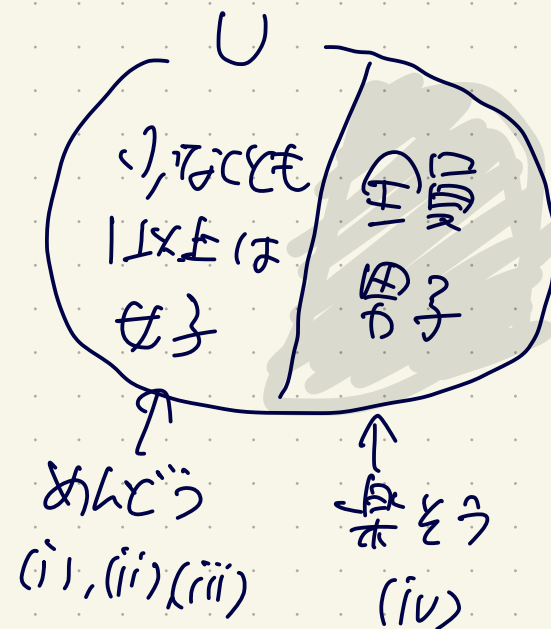 U
少なくとも
1以上は
女子
全員
男子
めんどう
(i),(ii)(iii)
楽そう
(iv)